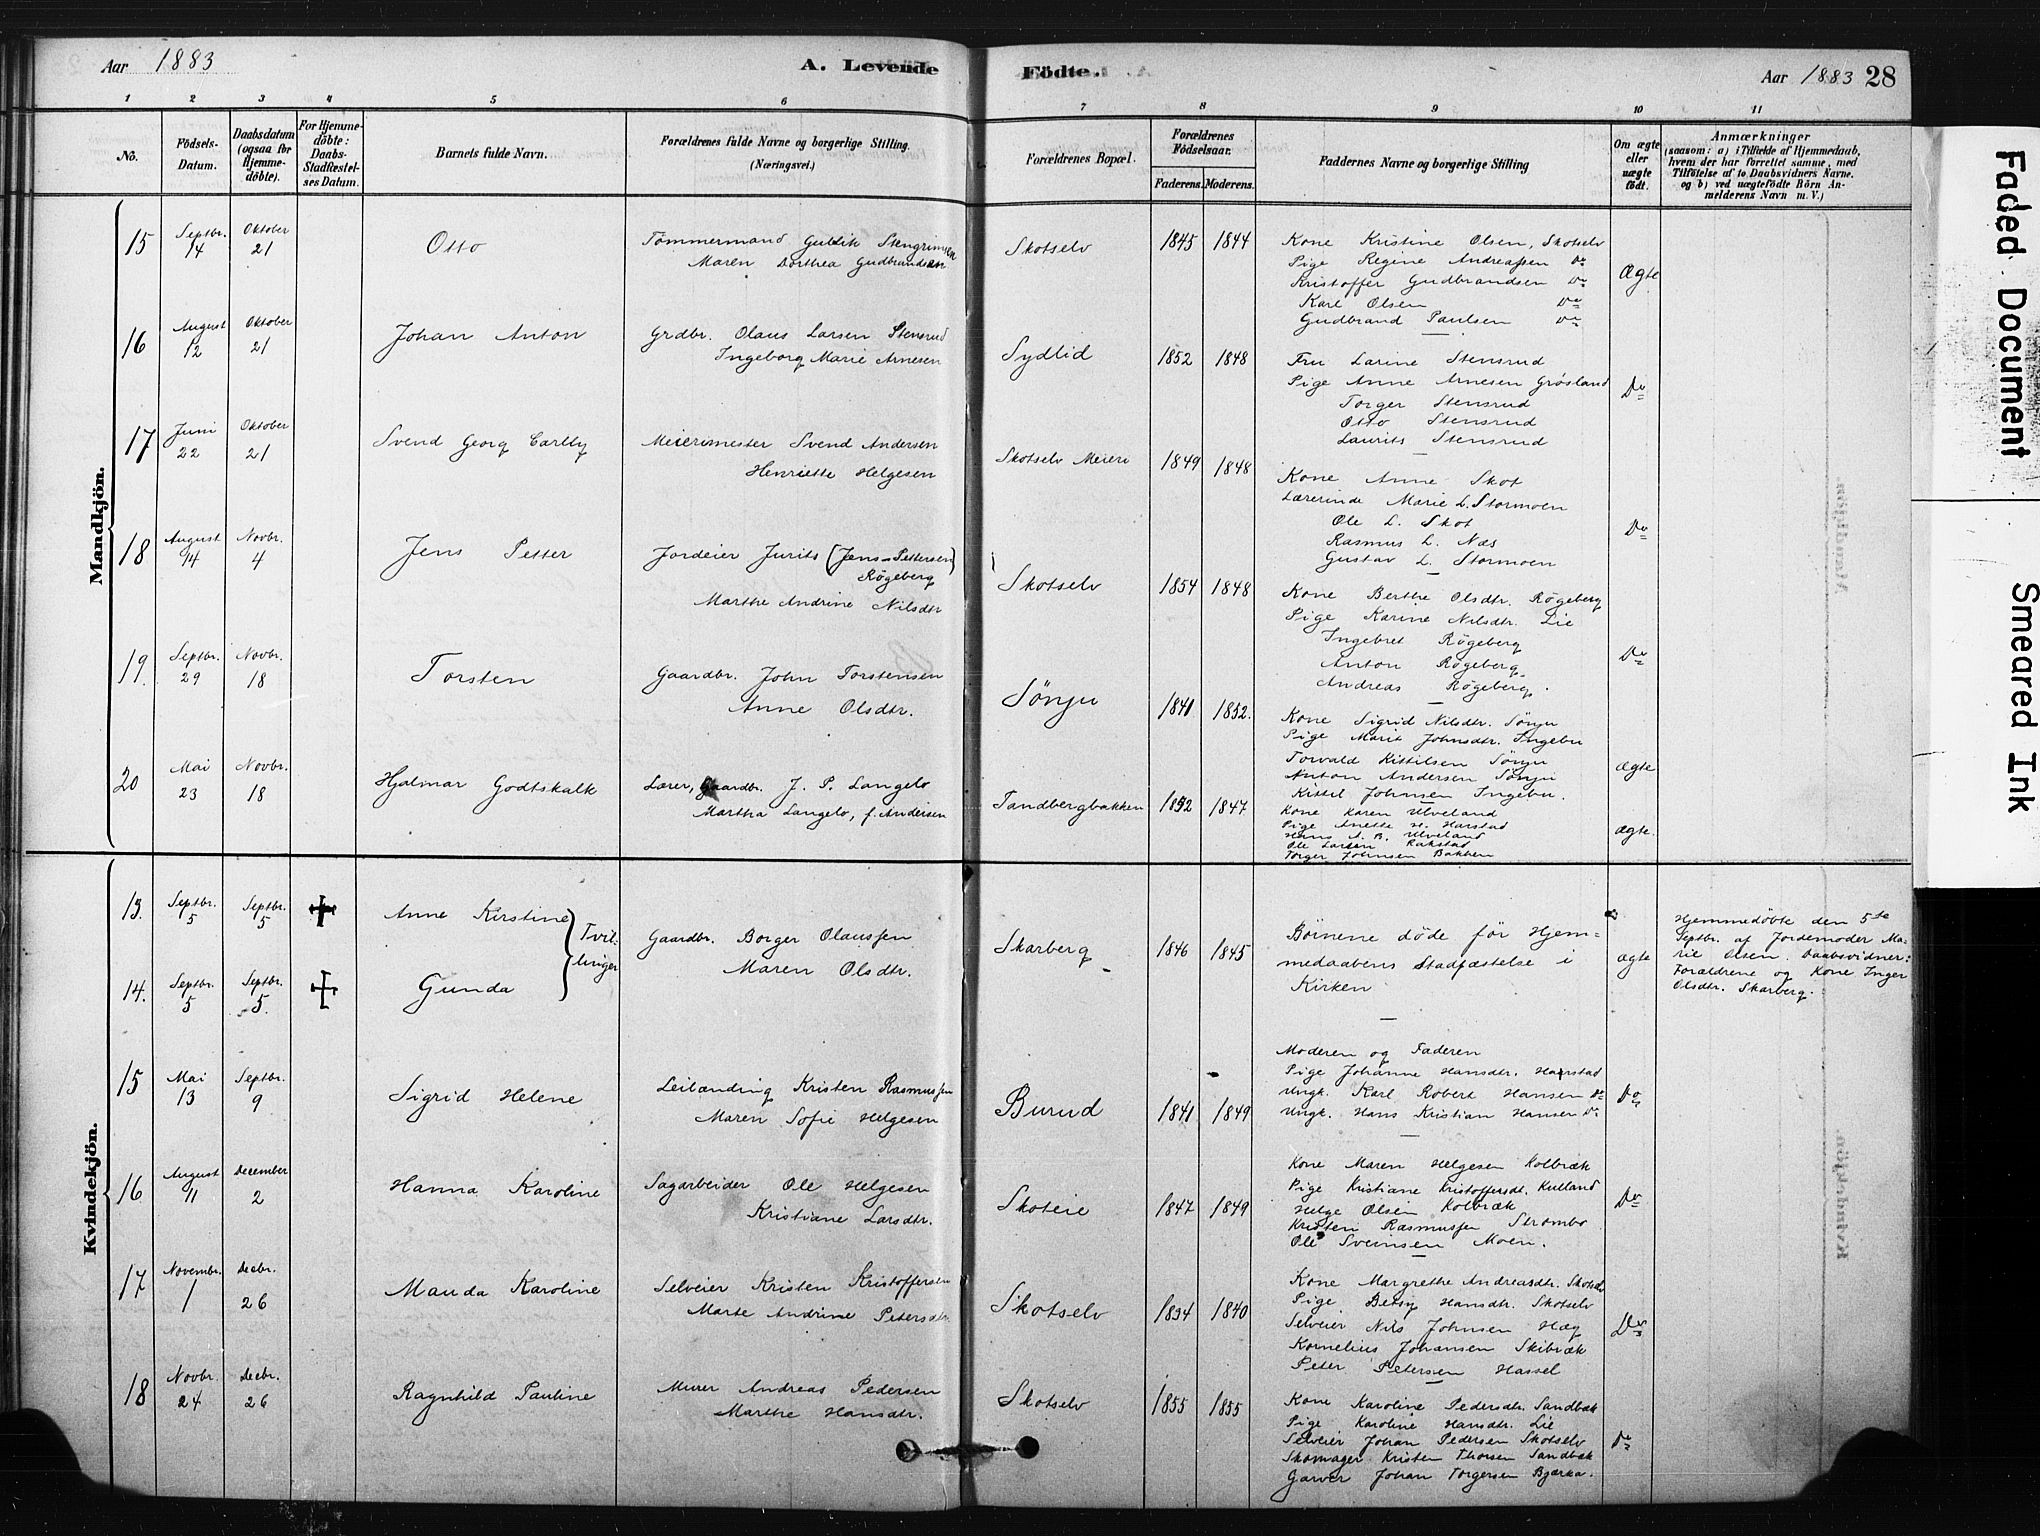 Aar 1883
A. Levende
Födte.
Aar 1883 28
1 2 3 4 5 6 7 8 9 10 11
No.
Födsels-
Datum.
Daabsdatum
(ogsaa for
Hjemme-
döbte).
For Hjemme-
döbte:
Daabs-
Stadfæstel-
ses Datum.
Barnets fulde Navn.
Forældrenes fulde Navne og borgerlige Stilling.
(Næringsvei.)
Forældrenes Bopæl.
Forældrenes
Födselsaar.
Faderens. Moderens.
Faddernes Navne og borgerlige Stilling
Om ægte
eller
uægte
födt.
Anmærkninger
(saasom: a) i Tilfælde af Hjemmedaab,
hvem der har forrettet samme, med
Tilföielse af to Daabsvidners Navne.
og b) ved uægtefödte Börn An-
melderens Navn m. V.)
Mandkjön.
15 Septbr. 14 Oktober 21 Otto
Tømmermand Gullik Stengrimsen
Maren Dorthea Gudbrandsen
Skotselv 1845 1844
Kone Kristine Olsen, Skotselv
Pige Regine Andreassen Do
Kristoffer Gudbrandsen Do
Karl Olsen Do
Gudbrand Paulsen Do
Ægte
16 August 12 Oktober 21 Johan Anton
Grdbr. Olaus Larsen Stensrud
Ingeborg Marie Arnesen
Sydlid 1852 1848
Fru Larine Stensrud
Pige Anne Arnesen Grøsland
Torger Stensrud
Otto Stensrud
Laurits Stensrud
Do
17 Juni 22 Oktober 21 Svend Georg Carlby
Meierimester Svend Andersen
Henriette Helgesen
Skotselv Meieri 1849 1848
Kone Anne Skot
Lærerinde Marie L. Stormoen
Ole L. Skot
Rasmus L. Næs
Gustav L. Stormoen
Do
18 August 14 Novbr. 4 Jens Petter
Jordeier Jurits (Jens Pettersen)
Røgeberg
Marthe Andrine Nilsdtr
Skotselv 1854 1848
Kone Berthe Olsdtr. Røgeberg
Pige Karine Nilsdtr. Lie
Ingebret Røgeberg
Anton Røgeberg
Andreas Røgeberg.
Do
19. Septbr. 29 Novbr. 18 Torsten
Gaardbr. John Torstensen
Anne Olsdtr.
Sønju 1841 1852.
Kone Sigrid Nilsdtr. Sønju
Pige Marit Johnsdtr. Ingebu
Torvald Kittilsen Sønju
Anton Andersen Sønju
Kittil Johnsen Ingebu.
ægte
20 Mai 23 Novbr. 18 Hjalmar Godtskalk
Lærer, Gaardbr. J. P. Langelo
Martha Langelo, f. Andersen
Tandbergbakken 1852 1847
Kone Karen Ulveland
Pige Anette H. Harstad
Hans A. B. Ulveland
Ole Larsen Rakstad
Torger Johnsen Bakken
ægte.
Kvindekjön.
13. Septbr. 5 Septbr. 5 Anne Kirstine
Tvil-
linger
14. Septbr. 5 Septbr. 5. Gunda
Gaardbr. Borger Olaussen
Maren Olsdtr.
Skarberg 1846 1845
Børnene døde før Hjem-
medaabens Stadfæstelse i
Kirken
ægte
Hjemmedøbte den 5te
Septbr. af Jordemoder Ma-
rie Olsen. Daabsvidner:
Forældrene og Kone Inger
Olsdtr. Skarberg.
15 Mai 13 Septbr. 9 Sigrid Helene
Leilænding Kristen Rasmussen
Maren Sofie Helgesen
Burud 1841 1849
Moderen og Faderen
Pige Johanne Hansdtr. Harstad
Ungk. Karl Robert Hansen Do
Ungk. Hans Kristian Hansen Do
Do
16 August 11 December 2 Hanna Karoline
Sagarbeider Ole Helgesen
Kristiane Larsdtr.
Skoteie 1847 1849
Kone Maren Helgesen Kolbræk
Pige Kristiane Kristoffersdt. Kulland
Helge Olsen Kolbræk
Kristen Rasmussen Strømbo
Ole Sveinsen Moen.
Do
17 Novembr. 1 Decbr. 26 Manda Karoline
Selveier Kristen Kristoffersen
Marte Andrine Petersdtr.
Skotselv 1834 1840
Kone Margrethe Andreasdtr. Skotselv
Pige Betsy Hansdtr. Skotselv
Selveier Nils Johnsen Hæg
Kornelius Johansen Skibræk
Peter Petersen Hassel
Do
18 Novbr. 24 Decbr. 26 Ragnhild Pauline
Murer Andreas Pedersen
Marthe Hansdtr.
Skotselv 1855 1855
Kone Karoline Pedersdtr. Sandbæk
Pige Karoline Hansdtr. Lie
Selveier Johan Pedersen Skotselv
Skomager Kristen Thorsen Sandbæk
Garver Johan Torgersen Bjerka.
Do
Faded Document
Smeared Ink